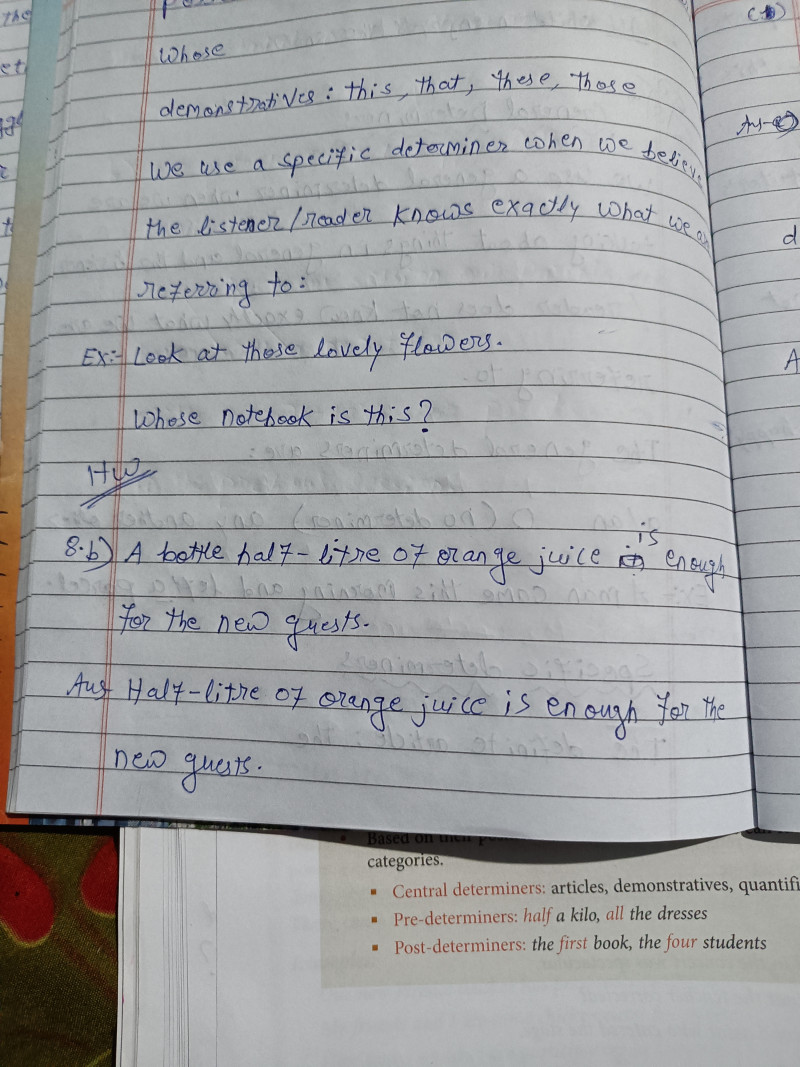 whose
demonstratives: this, that, these, those
We use a specific determiner when we believe
the listener/reader knows exactly what we
referring to:
Ex:- Look at those lovely flowers.
Whose notebook is this?
HW
8.b) A bottle half-litre of orange juice is enough
for the new guests.
Ans Half-litre of orange juice is enough for the
new guests.
Based on their
categories.
▪ Central determiners: articles, demonstratives, quantifi
▪ Pre-determiners: half a kilo, all the dresses
▪ Post-determiners: the first book, the four students
(b)
d
A
the